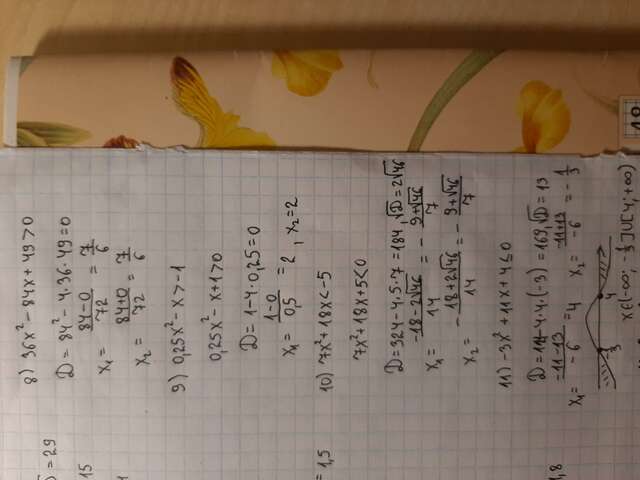 = 29
15
1
8) 36x² - 84x + 49 > 0
D = 84² - 4·36·49 = 0
x₁ = (84-0)/72 = 7/6
x₂ = (84+0)/72 = 7/6
9) 0,25x² - x > -1
0,25x² - x + 1 > 0
D = 1 - 4·0,25 = 0
x₁ = (1-0)/0,5 = 2, x₂ = 2
= 1,5
10) 7x² + 18x < -5
7x² + 18x + 5 < 0
D = 324 - 4·5·7 = 184, √D = 2√46
x₁ = (-18-2√46)/14 = - (9+√46)/7
x₂ = - (18+2√46)/14 = - (9+√46)/7
11) -3x² + 11x + 4 ≤ 0
D = 11 - 4·4·(-3) = 169, √D = 13
x₁ = (-11-13)/-6 = 4 x₂ = (-11+13)/-6 = -1/3
-1/3 4
x∈(-∞; -1/3]∪[4; +∞)
1,8
18